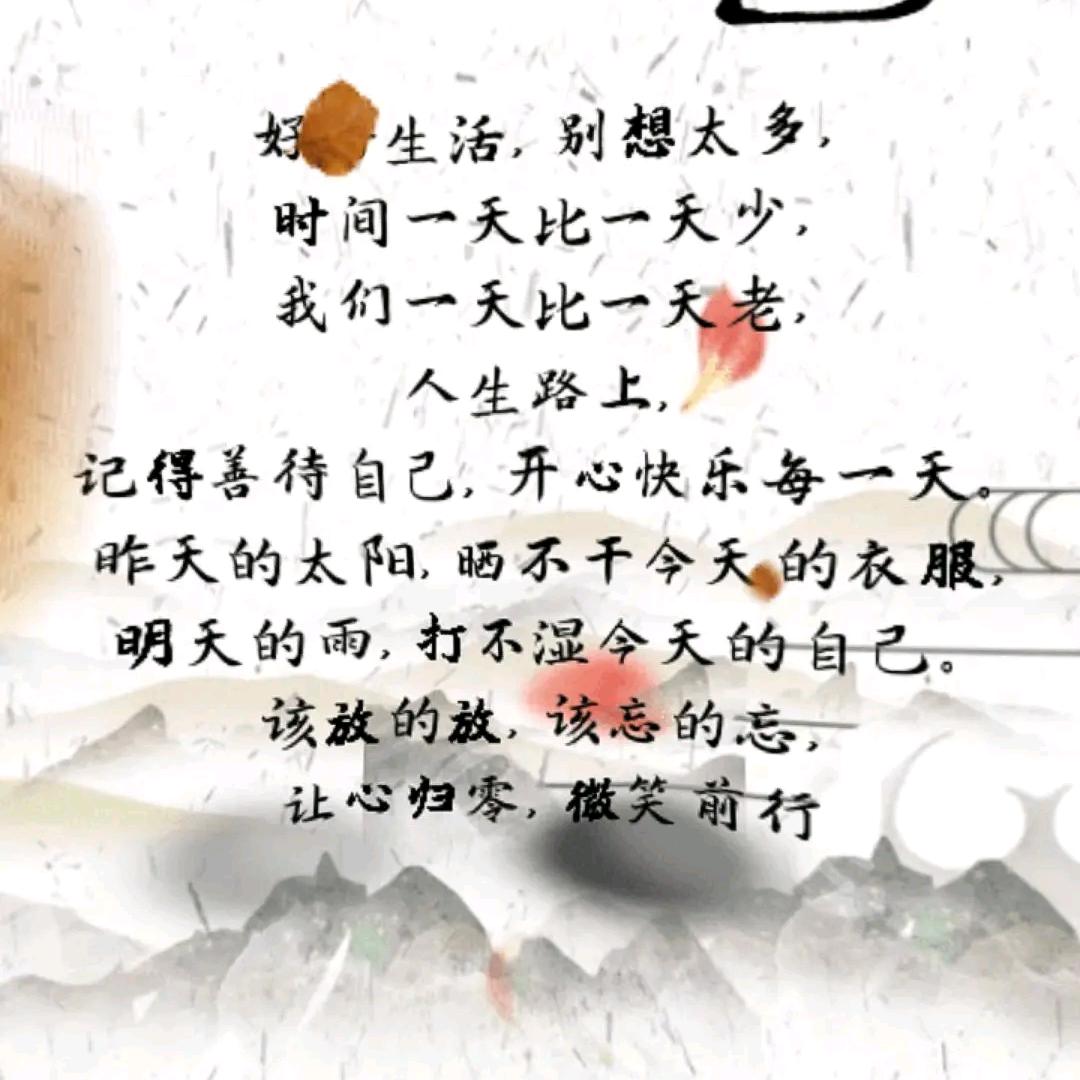 好 生活,别想太多,
时间一天比一天少,
我们一天比一天老,
人生路上,
记得善待自己,开心快乐每一天。
昨天的太阳,晒不干今天的衣服,
明天的雨,打不湿今天的自己。
该放的放,该忘的忘,
让心归零,微笑前行